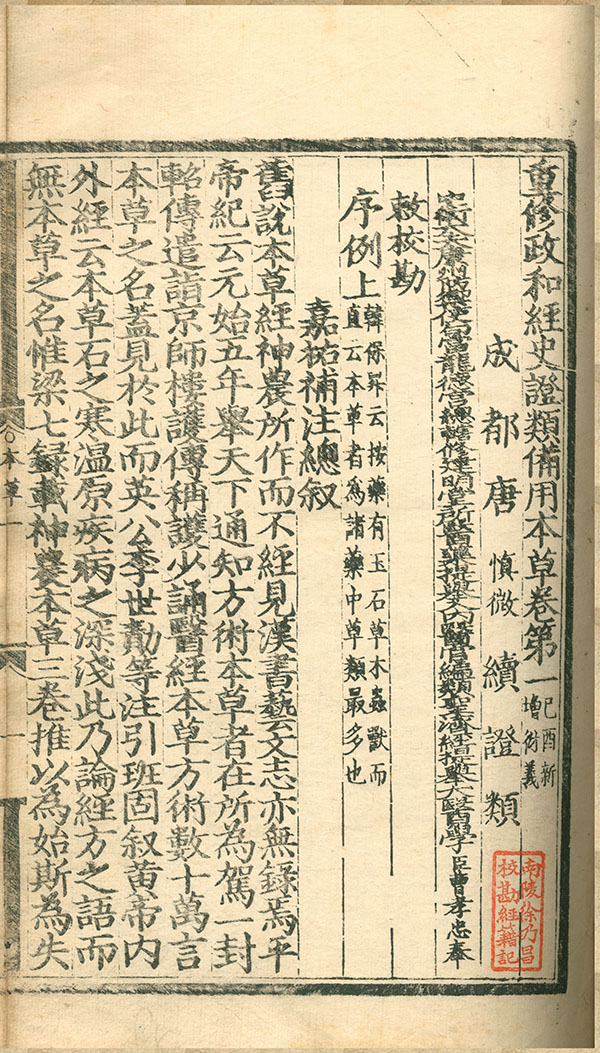 重修政和經史證類備用本草卷第一 己酉新增衍義
成都唐慎微續證類
中衛大夫康州防禦使句當龍德宮總轄修建明堂所醫藥提舉入內醫官編類聖濟經提舉太醫學臣曹孝忠奉
敕校勘
序例上 韓保昇云按藥有玉石草木蟲獸而直云本草者為諸藥中草類最多也
嘉祐補注總叙
舊說本草經神農所作而不經見漢書藝文志亦無錄焉平
帝紀云元始五年舉天下通知方術本草者在所為駕一封
軺傳遣詣京師樓護傳稱護少誦醫經本草方術數十萬言
本草之名蓋見於此而英公李世勣等注引班固叙黃帝內
外經云本草石之寒溫原疾病之深淺此乃論經方之語而
無本草之名惟梁七錄載神農本草三卷推以為始斯為失
本草一
一
南陵徐乃昌
校勘經籍記